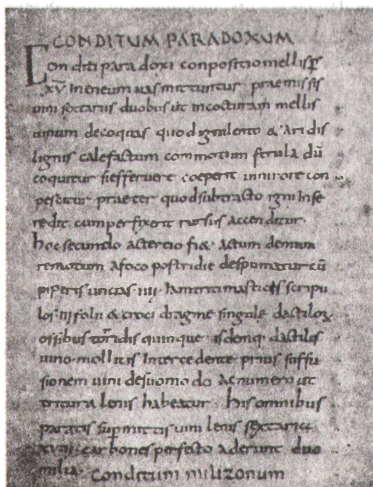 CONDITUM PARADOXUM
Conditi paradoxi conpositio mellis p
XV in eneum vas mittuntur praemissis
vini sextariis duobus ut in cocturam mellis
vinum decoquas quod igni lento & aridis
lignis calefactum commotum ferula dū
coquitur si effervere coeperit vini rore con
pescitur praeter quod subtracto igni in se
redit cum perfrixerit rursus accenditur
hoc secundo ac tercio fi& ac tum demum
remotum a foco postridie despumatur cū
piperis uncias IIII mastices scripu
los III folii & croci dragme singule dactilor
ossibus torridis quinque isdemq dactilis
vino mollitis intercedente prius suffu
sionem vini de suo modo ac numero ut
tritura lenis habeatur his omnibus
paratis supmittis vini lenis sextarios
XVIII carbones perfecto aderunt duo
milia conditum milizonum